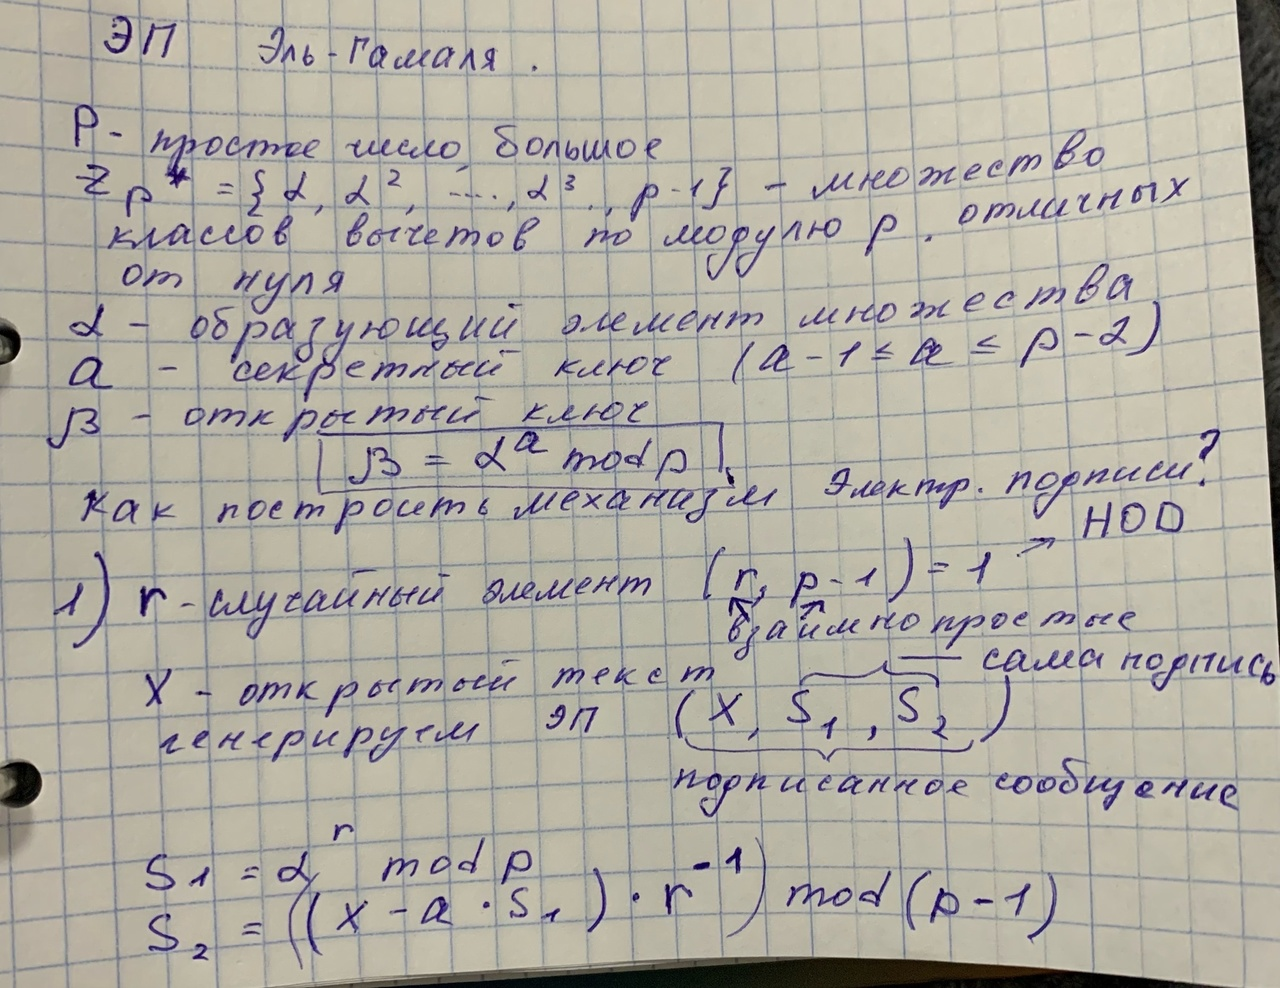 ЭП Эль-Гамаля.
P - простое число большое
Zp* = {α, α², ...., α³, p-1} - множество
классов вычетов по модулю p, отличных
от нуля
α - образующий элемент множества
a - секретный ключ (a-1 ≤ a ≤ p-2)
β - открытый ключ
β = α^a mod p
Как построить механизм электр. подписи?
1) r - случайный элемент (r, p-1) = 1 → НОД
взаимно простые
X - открытый текст — сама подпись
генерируем ЭП (X, S₁, S₂)
подписанное сообщение
S₁ = α^r mod p
S₂ = ((X - a · S₁) · r⁻¹) mod (p-1)